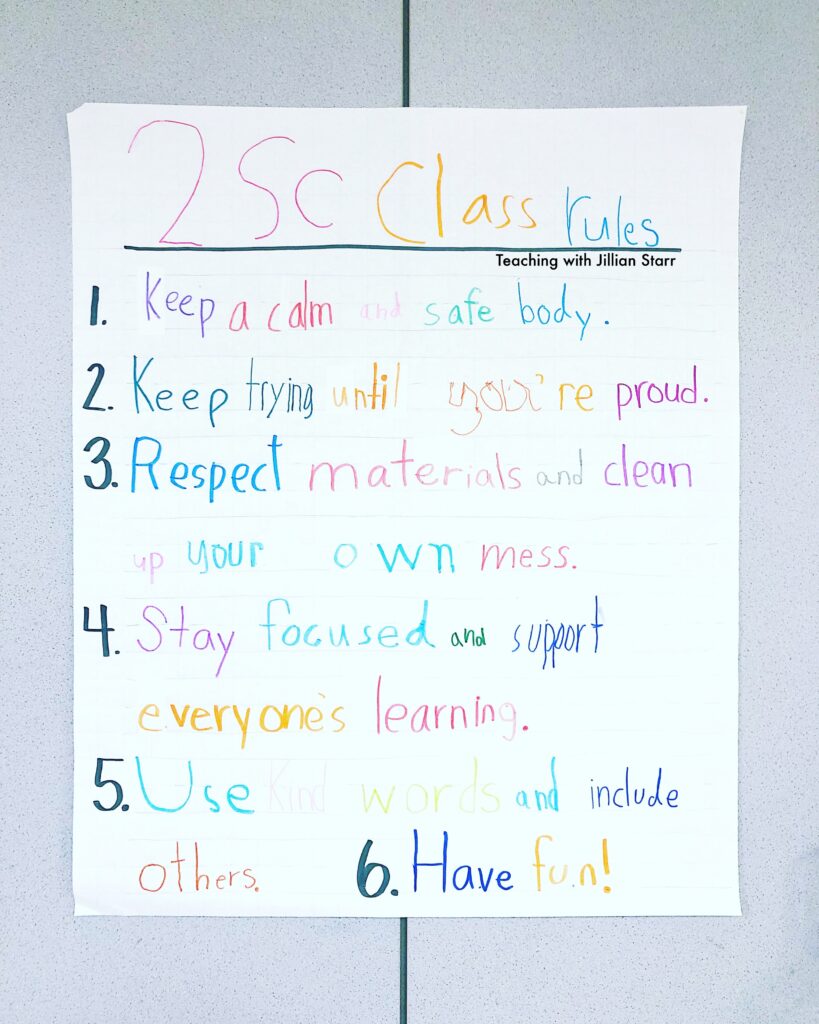 2Sc Class rules
Teaching with Jillian Starr
1. Keep a calm and safe body.
2. Keep trying until you're proud.
3. Respect materials and clean
up your own mess.
4. Stay focused and support
everyone's learning.
5. Use kind words and include
others. 6. Have fun!